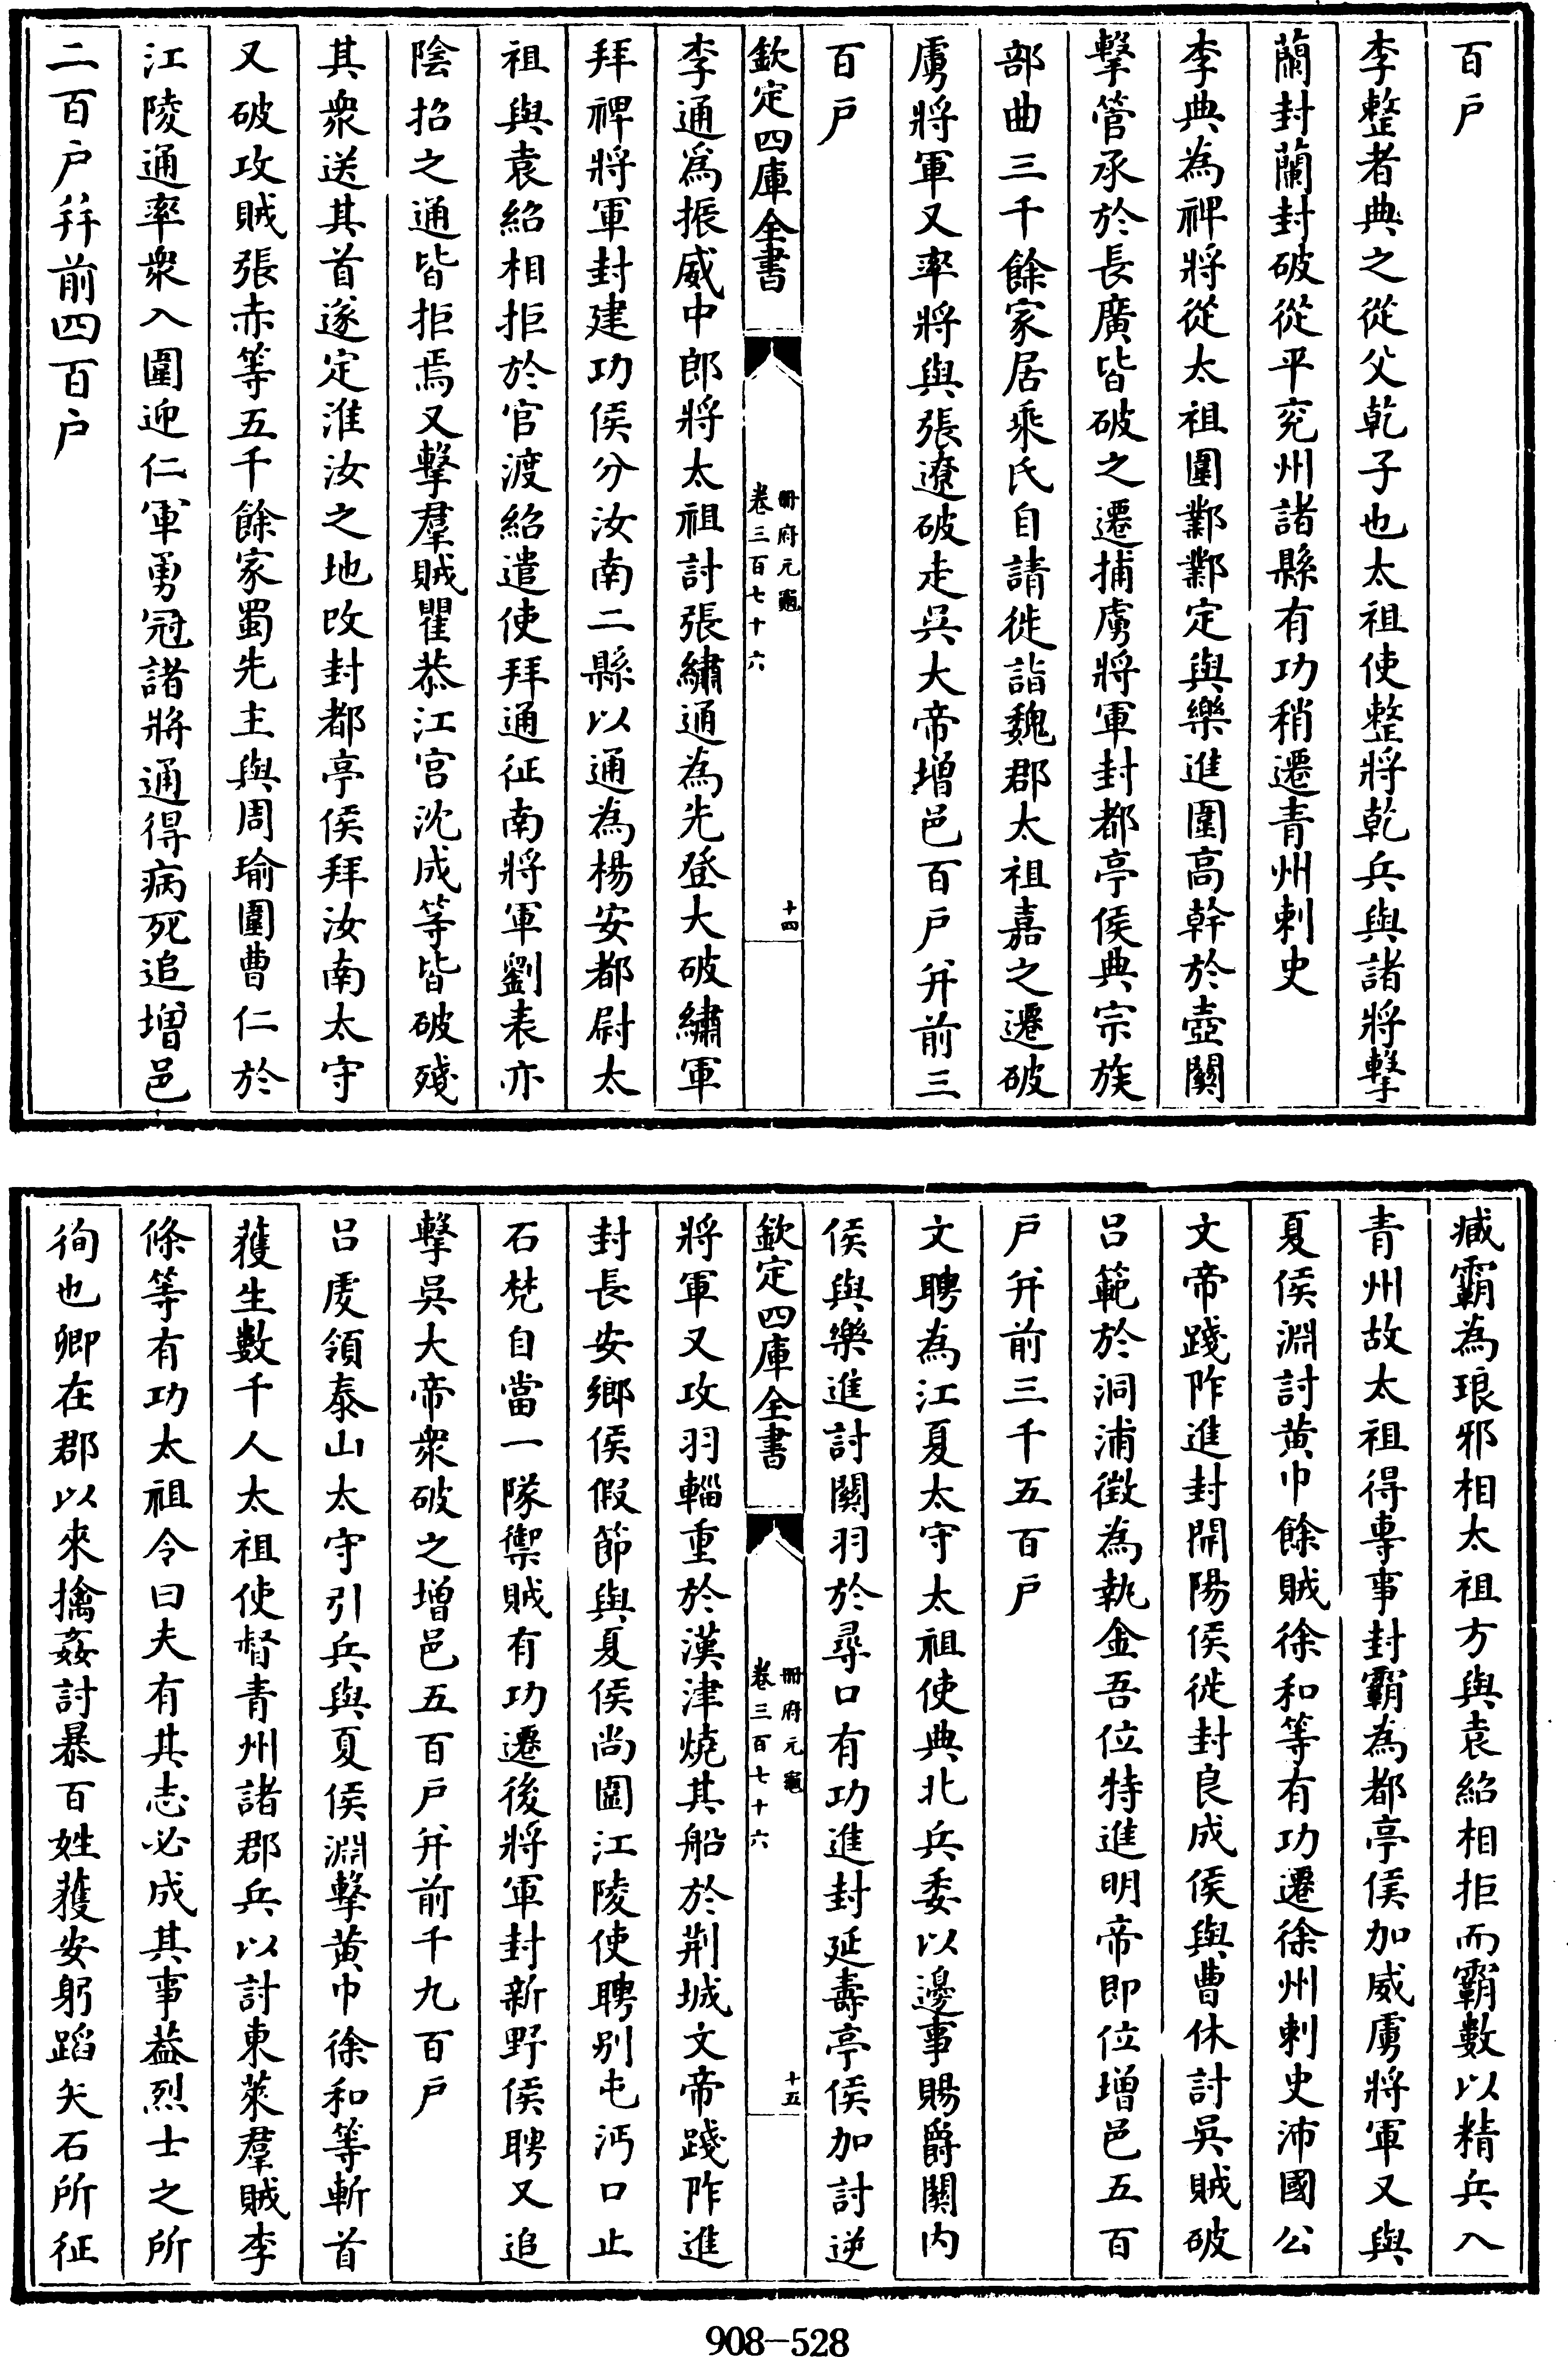 百户
李整者典之從父乾子也太祖使整將乾兵與諸將擊
蘭封蘭封破從平兖州諸縣有功稍遷青州刺史
李典為禆將從太祖圍鄴鄴定與樂進圍高幹於壺關
擊管承於長廣皆破之遷捕虜將軍封都亭侯典宗族
部曲三千餘家居乘氏自請徙詣魏郡太祖嘉之遷破
虜將軍又率將與張遼破走吳大帝增邑百户并前三
百户
欽定四庫全書
冊府元龜
卷三百七十六
十四
李通為振威中郎將太祖討張繡通為先登大破繡軍
拜禆將軍封建功侯分汝南二縣以通為楊安都尉太
祖與袁紹相拒於官渡紹遣使拜通征南將軍劉表亦
陰招之通皆拒焉又擊羣賊瞿恭江宫沈成等皆破殘
其衆送其首遂定淮汝之地改封都亭侯拜汝南太守
又破攻賊張赤等五千餘家蜀先主與周瑜圍曹仁於
江陵通率衆入圍迎仁軍勇冠諸將通得病死追增邑
二百户并前四百户
臧霸為琅邪相太祖方與袁紹相拒而霸數以精兵入
青州故太祖得專事封霸為都亭侯加威虜將軍又與
夏侯淵討黄巾餘賊徐和等有功遷徐州刺史沛國公
文帝踐阼進封開陽侯徙封良成侯與曹休討吳賊破
呂範於洞浦徵為執金吾位特進明帝即位增邑五百
户并前三千五百户
文聘為江夏太守太祖使典北兵委以邊事賜爵關内
侯與樂進討關羽於尋口有功進封延壽亭侯加討逆
欽定四庫全書
冊府元龜
卷三百七十六
十五
將軍又攻羽輜重於漢津燒其船於荆城文帝踐阼進
封長安鄉侯假節與夏侯尚圍江陵使聘别屯沔口止
石梵自當一隊禦賊有功遷後將軍封新野侯聘又追
擊吳大帝衆破之增邑五百户并前千九百户
呂虔領泰山太守引兵與夏侯淵擊黄巾徐和等斬首
獲生數千人太祖使督青州諸郡兵以討東萊羣賊李
條等有功太祖令曰夫有其志必成其事葢烈士之所
徇也卿在郡以來擒姦討暴百姓獲安躬蹈矢石所征
908-528